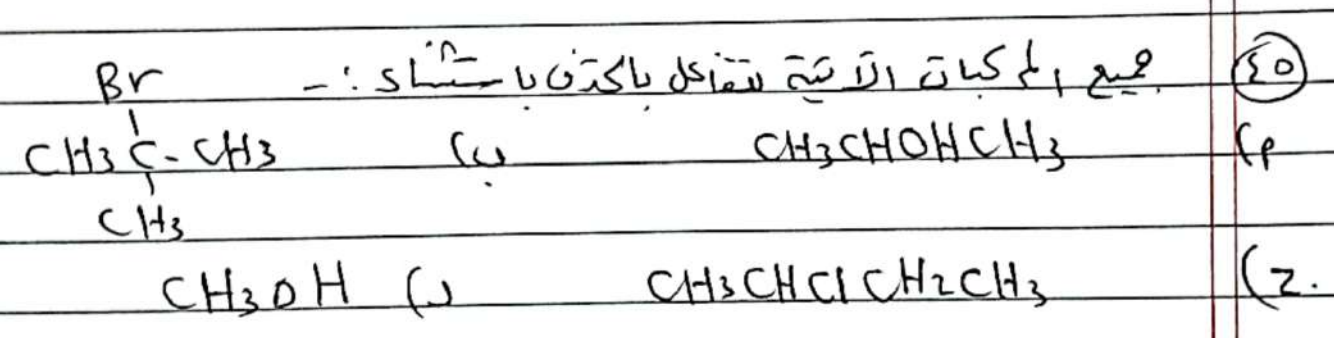 ٤٥) جميع المركبات الآتية تتفاعل بالحذف باستثناء :-
أ) CH3CHOHCH3 ب) CH3C(Br)(CH3)-CH3
ج) CH3CHClCH2CH3 د) CH3OH